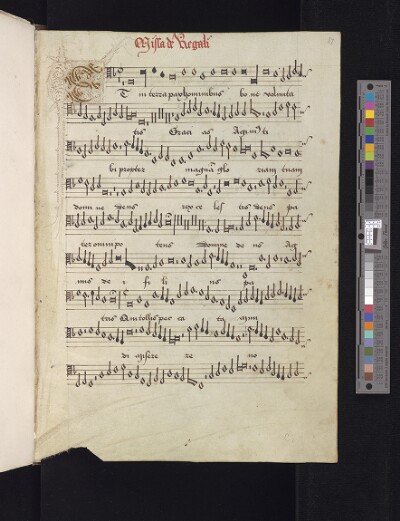 Missa de Regali
Et in terra pax hominibus bone volunta
tis Gracias Agim9 ti
bi propter magnā glo riam tuam
domi ne deus rex ce les tis deus pa
ter omnipo tens Domine de us Ag
nus de i fi li us pa
tris Qui tollis pec ca ta mun
di misere re no